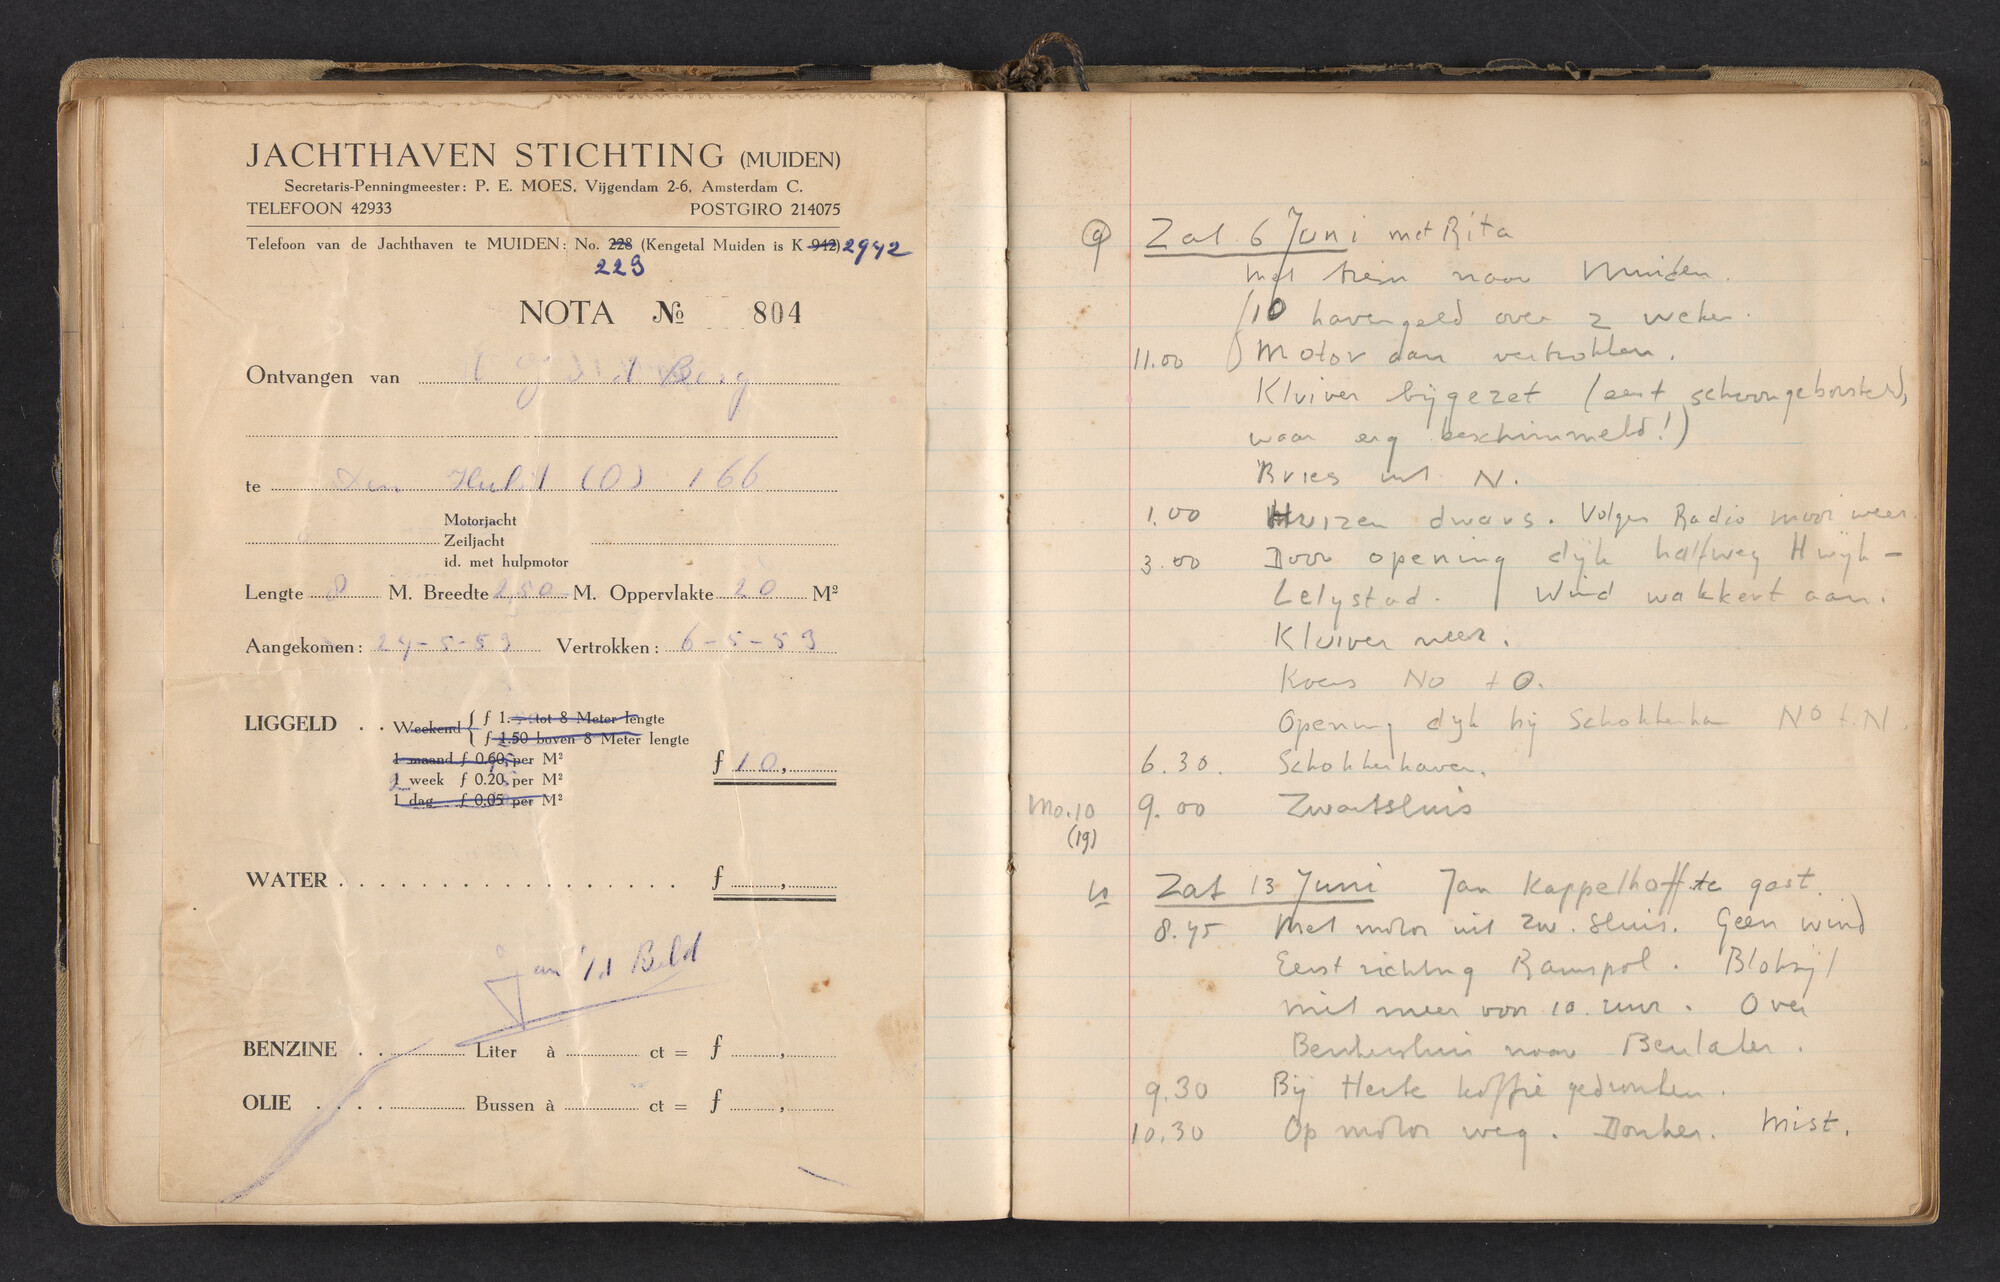 JACHTHAVEN STICHTING (MUIDEN)
Secretaris-Penningmeester: P. E. MOES, Vijgendam 2-6, Amsterdam C.
TELEFOON 42933 POSTGIRO 214075
Telefoon van de Jachthaven te MUIDEN: No. 228 (Kengetal Muiden is K 942) 2942
223
NOTA № 804
Ontvangen van Berg
te (O) 166
Motorjacht
Zeiljacht
id. met hulpmotor
Lengte 8 M. Breedte 2,50 M. Oppervlakte 20 M²
Aangekomen: 24-5-53 Vertrokken: 6-5-53
LIGGELD . . Weekend { f 1.— tot 8 Meter lengte
f 1.50 boven 8 Meter lengte
1 maand f 0.60 per M²
2 week f 0.20 per M²
1 dag f 0.05 per M²
f 10,
WATER f ,
BENZINE . . Liter à ct = f ,
OLIE . . . . Bussen à ct = f ,
9 Zat 6 Juni met Rita
Met trein naar Muiden.
f 10 havengeld over 2 weken.
11.00 Motor aan vertrokken.
Kluiver bijgezet (eerst schoongeborsteld,
was erg beschimmeld!)
Bries uit N.
1.00 Huizen dwars. Volgens Radio mooi weer.
3.00 Door opening dijk halfweg Hwijk -
Lelystad. Wind wakkert aan.
Kluiver neer.
Koers NO t O.
Opening dijk bij Schokkerhaven NO t. N.
6.30. Schokkerhaven.
Mo. 10 9.00 Zwartsluis
(19)
10 Zat 13 Juni Jan Kappelhoff te gast.
8.45 Met motor uit Zw. Sluis. Geen wind
Eerst richting Ramspol. Blokzijl
niet meer voor 10 uur. Over
Beukersluis naar Beulaker.
9.30 Bij Herke koffie gedronken.
10.30 Op motor weg. Donker. Mist.